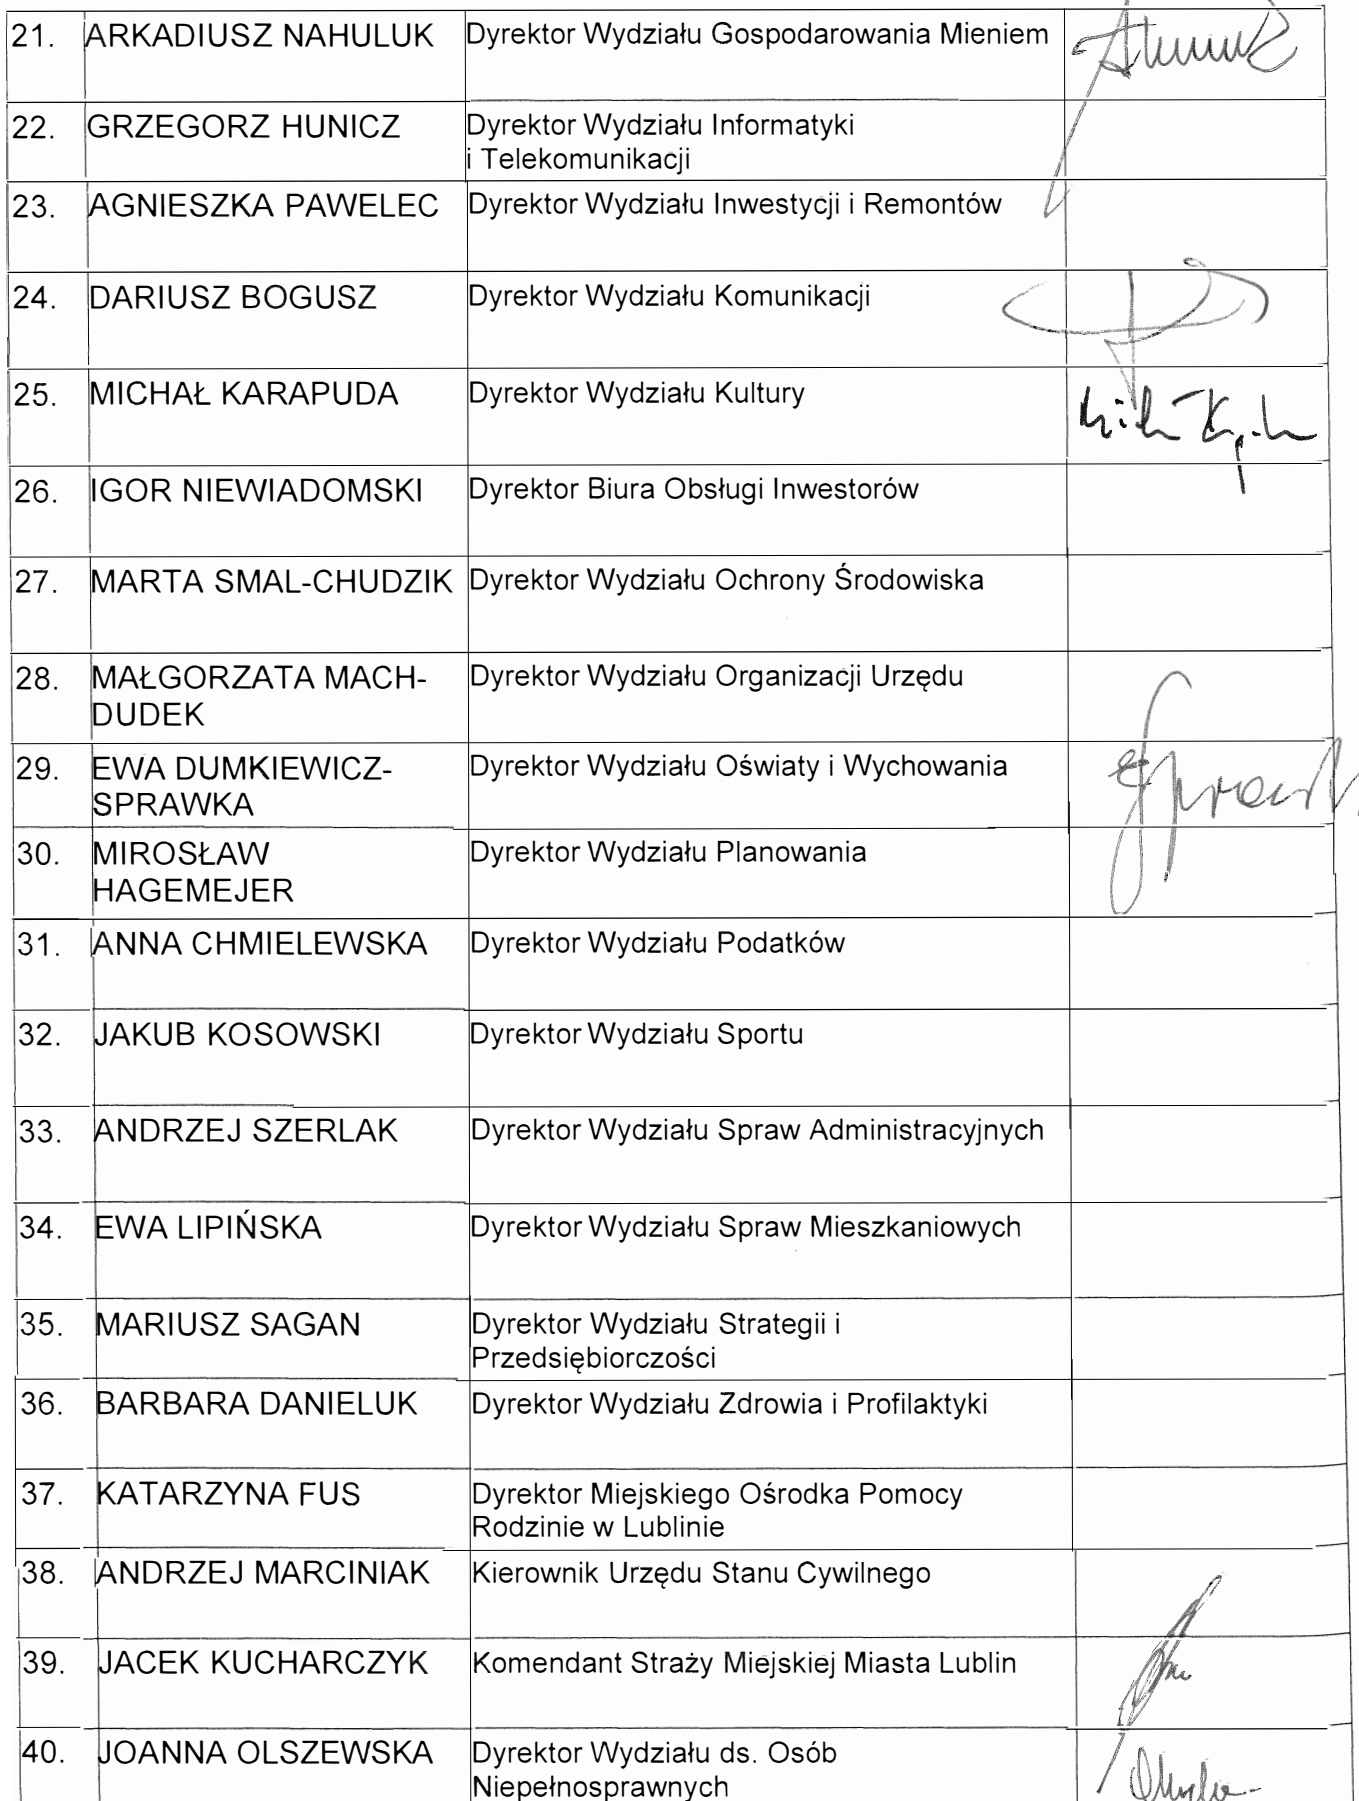 21. ARKADIUSZ NAHULUK Dyrektor Wydziału Gospodarowania Mieniem
22. GRZEGORZ HUNICZ Dyrektor Wydziału Informatyki
i Telekomunikacji
23. AGNIESZKA PAWELEC Dyrektor Wydziału Inwestycji i Remontów
24. DARIUSZ BOGUSZ Dyrektor Wydziału Komunikacji
25. MICHAŁ KARAPUDA Dyrektor Wydziału Kultury
26. IGOR NIEWIADOMSKI Dyrektor Biura Obsługi Inwestorów
27. MARTA SMAL-CHUDZIK Dyrektor Wydziału Ochrony Środowiska
28. MAŁGORZATA MACH- Dyrektor Wydziału Organizacji Urzędu
DUDEK
29. EWA DUMKIEWICZ- Dyrektor Wydziału Oświaty i Wychowania
SPRAWKA
30. MIROSŁAW Dyrektor Wydziału Planowania
HAGEMEJER
31. ANNA CHMIELEWSKA Dyrektor Wydziału Podatków
32. JAKUB KOSOWSKI Dyrektor Wydziału Sportu
33. ANDRZEJ SZERLAK Dyrektor Wydziału Spraw Administracyjnych
34. EWA LIPIŃSKA Dyrektor Wydziału Spraw Mieszkaniowych
35. MARIUSZ SAGAN Dyrektor Wydziału Strategii i
Przedsiębiorczości
36. BARBARA DANIELUK Dyrektor Wydziału Zdrowia i Profilaktyki
37. KATARZYNA FUS Dyrektor Miejskiego Ośrodka Pomocy
Rodzinie w Lublinie
38. ANDRZEJ MARCINIAK Kierownik Urzędu Stanu Cywilnego
39. JACEK KUCHARCZYK Komendant Straży Miejskiej Miasta Lublin
40. JOANNA OLSZEWSKA Dyrektor Wydziału ds. Osób
Niepełnosprawnych